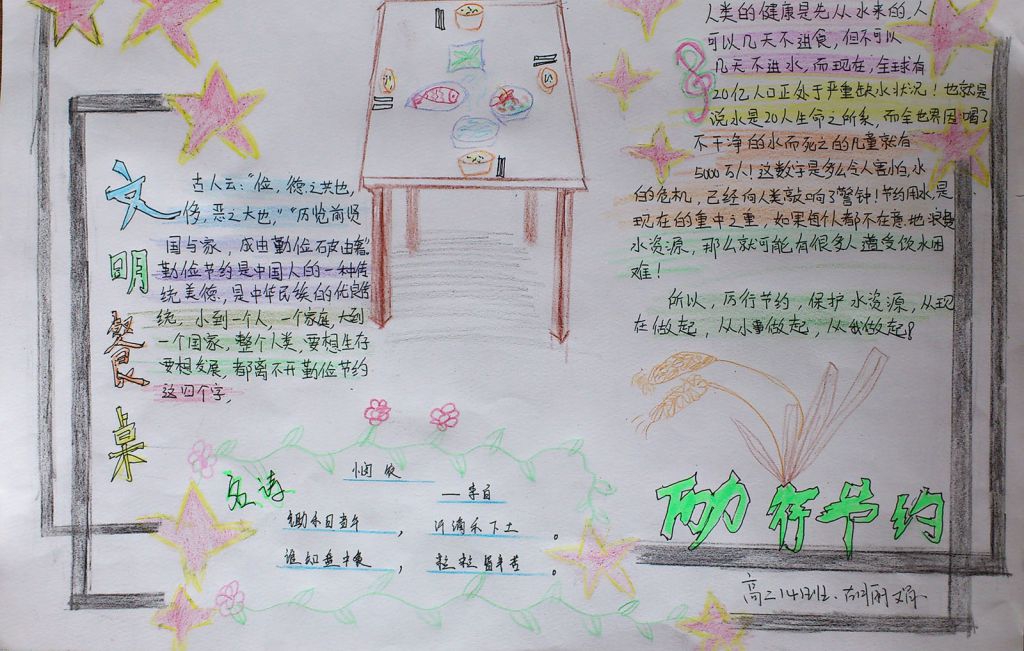 文明餐桌
古人云：“俭，德之共也，
侈，恶之大也，”“历览前贤
国与家，成由勤俭破由奢”。
勤俭节约是中国人的一种传
统美德，是中华民族的优良传
统，小到一个人，一个家庭，大到
一个国家，整个人类，要想生存
要想发展，都离不开勤俭节约
这四个字，
古诗
悯农
—李白
锄禾日当午，汗滴禾下土。
谁知盘中餐，粒粒皆辛苦。
人类的健康是先从水来的，人
可以几天不进食，但不可以
几天不进水，而现在，全球有
20亿人口正处于严重缺水状况！也就是
说水是20人生命之所系，而全世界因喝了
不干净的水而死之的儿童就有
5000万人！这数字是多么令人害怕，水
的危机，已经向人类敲响了警钟！节约用水，是
现在的重中之重，如果每个人都不在意地浪费
水资源，那么就可能有很多人遭受饮水困
难！
所以，厉行节约，保护水资源，从现
在做起，从小事做起，从我做起！
厉行节约
高二14班